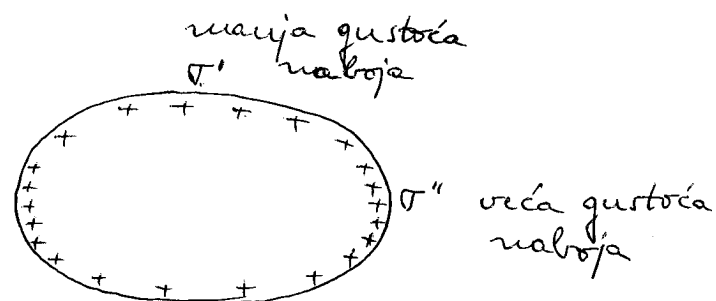 manja gustoća
σ' naboja
σ" veća gustoća
naboja